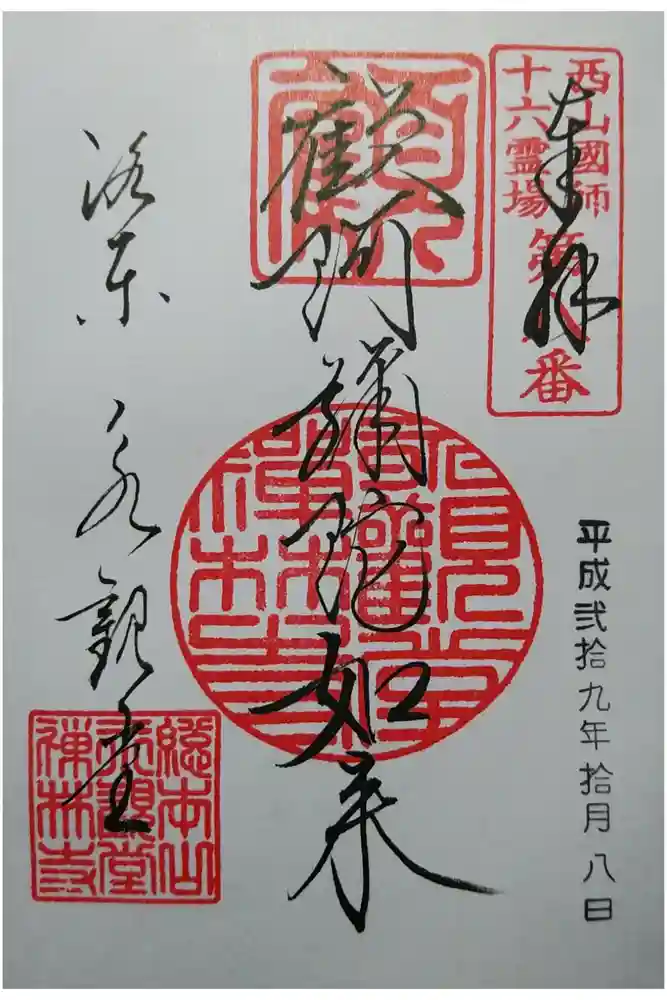 西山國師
十六霊場
番
奉拝
平成弐拾九年拾月八日
顧阿彌陀如来
洛東 永観堂
總本山
永觀堂
禅林寺